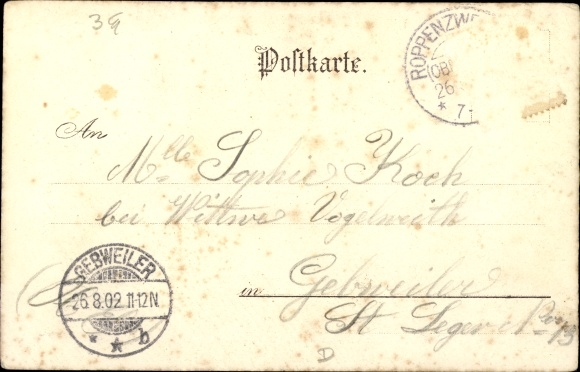 39
Postkarte.
ROPPENZW
(OB
26
* 7-
An
Mlle Sophie Koch
bei Wittwe Vogelweith
in Gebweiler
St Leger
No 13
GEBWEILER
26.8.02 11-12N.
* * b
D